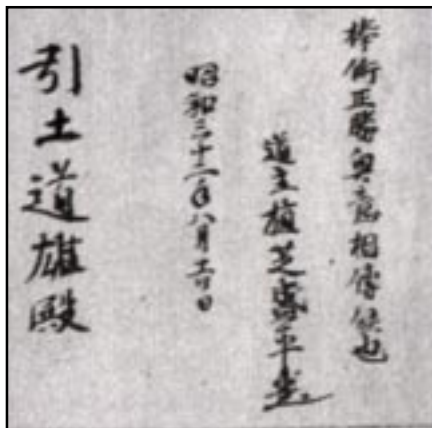 棒術正勝奥意相傳候也
道主植芝盛平
昭和三十二年八月 日
引土道雄殿